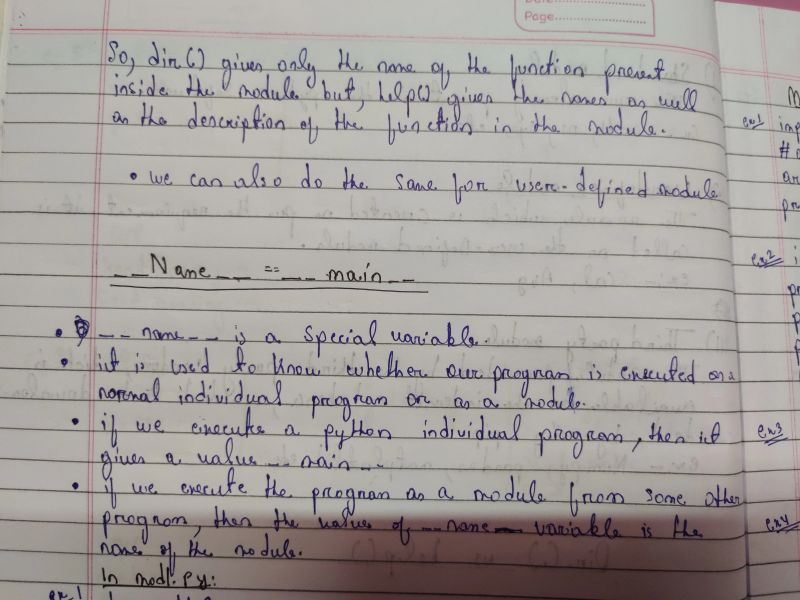 Date
Page
So, dir() gives only the name of the function present
inside the module but, help() gives the names as well
as the description of the function in the module.
• we can also do the same for user-defined module
__Name__ == __main__
• __name__ is a special variable.
• it is used to know whether our program is executed as a
normal individual program or as a module.
• if we execute a python individual program, then it
gives a value __main__
• if we execute the program as a module from some other
program, then the values of __name__ variable is the
name of the module.
In mod1.py:
ex.1
ex1
#
pr
ex2
i
pr
ex3
ex4